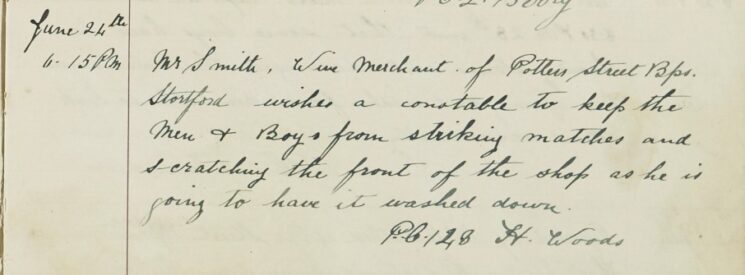 June 24th
6.15 PM
Mr Smith, Wine Merchant of Potters Street Bps.
Stortford wishes a constable to keep the
Men & Boys from striking matches and
scratching the front of the shop as he is
going to have it washed down.
P.C. 128 H. Woods